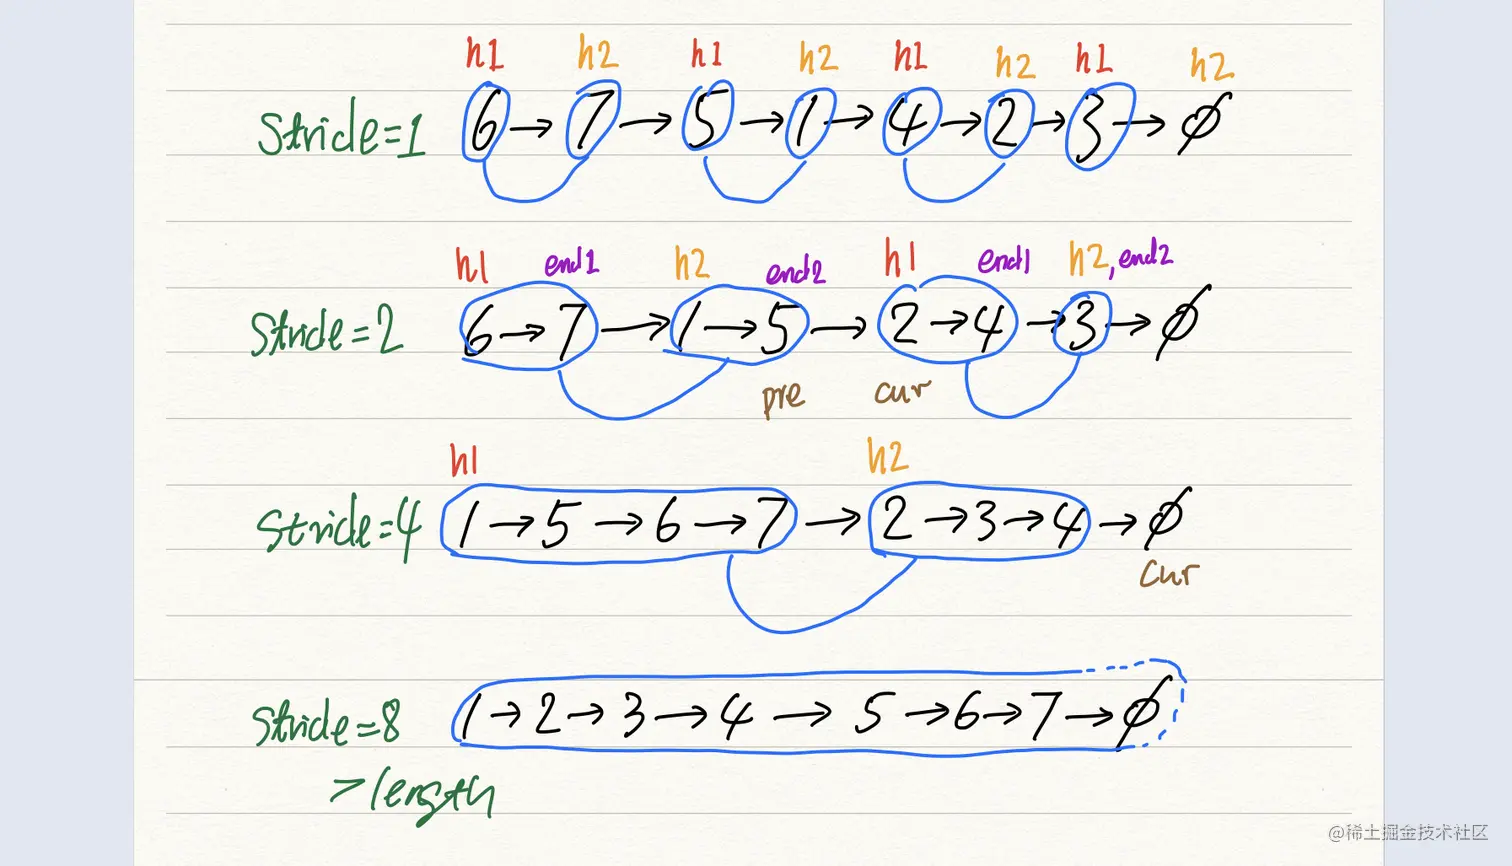 h1 h2 h1 h2 h1 h2 h1 h2
Stride=1 6→7→5→1→4→2→3→∅
h1 end1 h2 end2 h1 end1 h2,end2
Stride=2 6→7→1→5→2→4→3→∅
pre cur
h1 h2
Stride=4 1→5→6→7→2→3→4→∅
cur
Stride=8 1→2→3→4→5→6→7→∅
>length
@稀土掘金技术社区